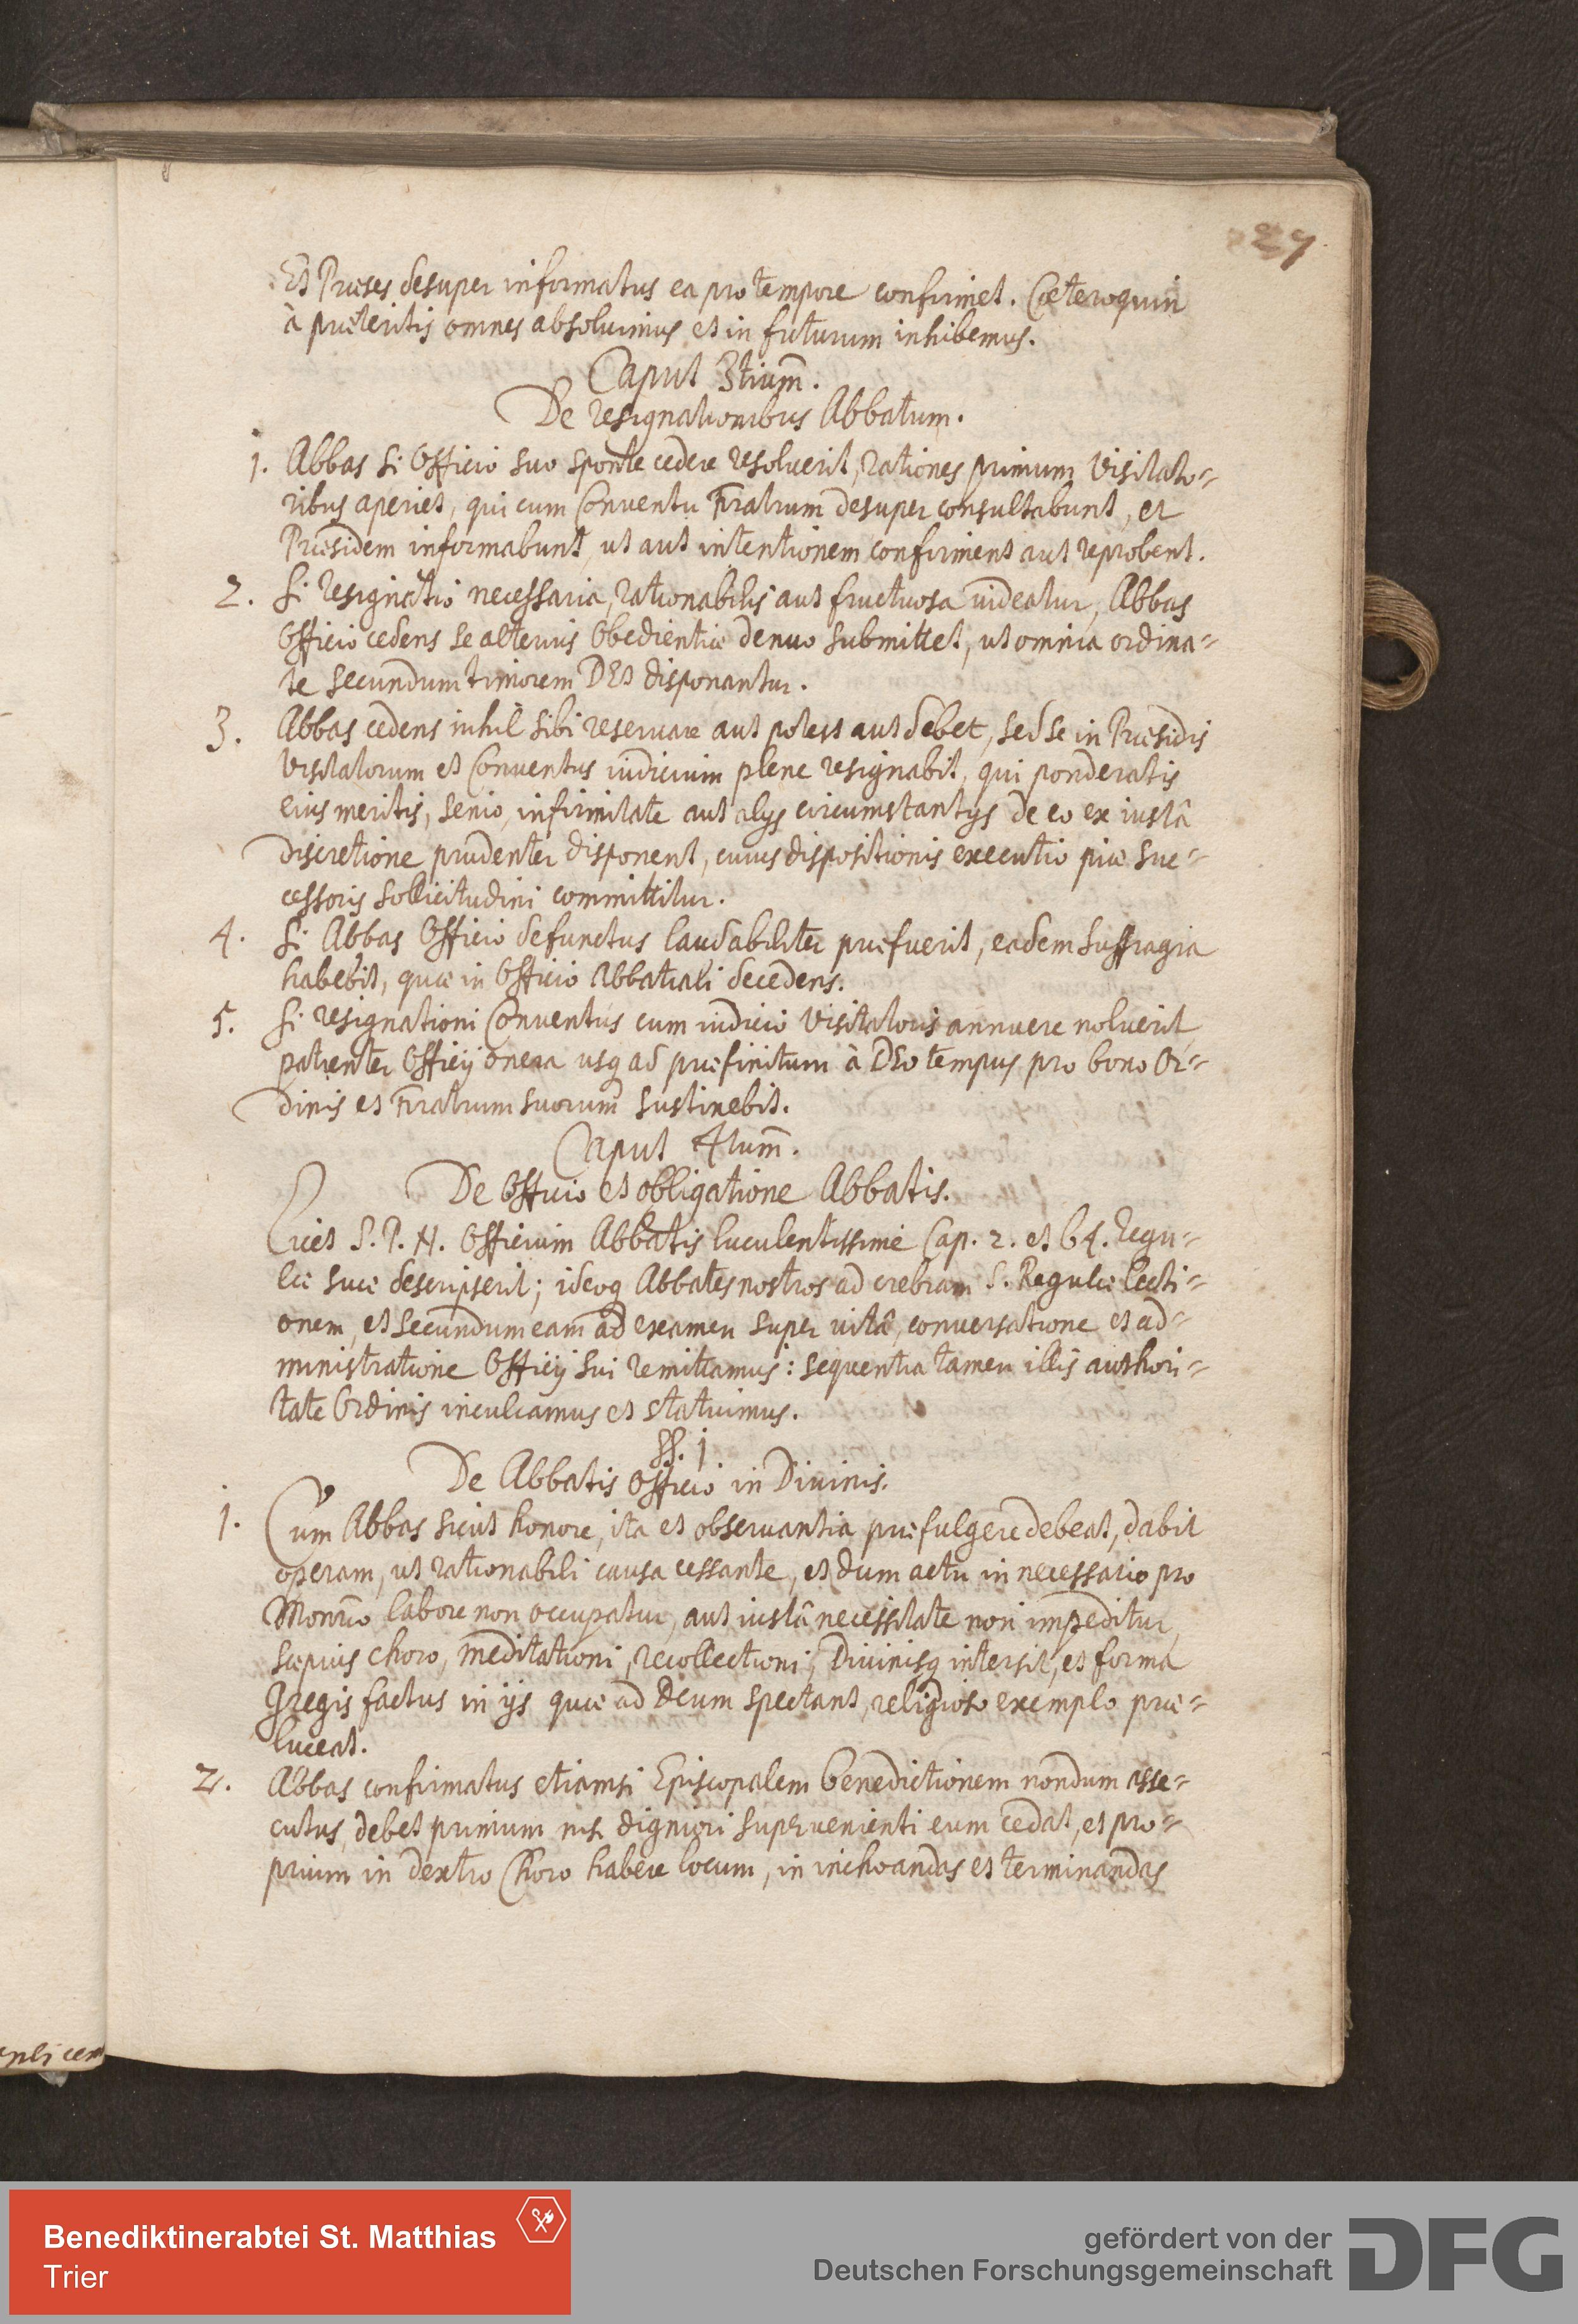 27
Et Præses desuper informatus ea pro tempore confirmet. Cæteroquin
à præteritis omnes absoluimus et in futurum inhibemus.
Caput 3tium̄.
De resignationibus Abbatum.
1. Abbas si Officio suo sponte cedere resoluerit, rationes primum Visitato=
ribus aperiet, qui cum Conventu Fratrum desuper consultabunt, et
Præsidem informabunt, ut aut intentionem confirment aut reprobent.
2. Si resignatio necessaria, rationabilis aut fructuosa uideatur, Abbas
Officio cedens se alterius Obedientiæ denuo submittet, ut omnia ordina=
te secundum timorem DEI disponantur.
3. Abbas cedens nihil sibi reseruare aut potest aut debet, sed se in Præsidis
Visitatorum et Conventus iudicium plene resignabit, qui ponderatis
eius meritis, senio, infirmitate aut alijs circumstantijs de eo ex iustâ
discretione prudenter disponent, cuius dispositionis executio piæ suc=
cessoris sollicitudini committitur.
4. Si Abbas Officio defunctus laudabiliter præfuerit, eadem suffragia
habebit, quæ in Officio Abbatiali decedens.
5. Si resignationi Conventus cum iudicio Visitatoris annuere noluerit,
patienter Officij onera usq ad præfinitum à DEO tempus pro bono Or=
dinis et Fratrum suorum sustinebit.
Caput 4tum̄.
De Officio et obligatione Abbatis.
Licet S. P. N. Officium Abbatis luculentissime Cap. 2. et 64. Regu=
læ suæ descripserit; ideoq Abbates nostros ad crebram S. Regulæ lecti=
onem, et secundum eam ad examen super uitâ, conuersatione et ad=
ministratione Officij sui remittamus: sequentia tamen illis authori=
tate Ordinis inculcamus et statuimus.
§§. j
De Abbatis Officio in Diuinis.
1. Cum Abbas sicut honore, ita et obseruantia præfulgere debeat, dabit
operam, ut rationabili causa cessante, et dum actu in necessario pro
Monrio labore non occupatur, aut iustâ necessitate non impeditur,
sæpius choro, meditationi, recollectioni, Diuinisq intersit, et forma
Gregis factus in ijs quæ ad Deum spectant, religioso exemplo præ=
luceat.
2. Abbas confirmatus etiamsi Episcopalem benedictionem nondum asse=
cutus, debet primum nisi digniori superuenienti eum cedat, et pro=
prium in dextro Choro habere locum, in inchoandas et terminandas
Benediktinerabtei St. Matthias
Trier
gefördert von der
Deutschen Forschungsgemeinschaft
DFG